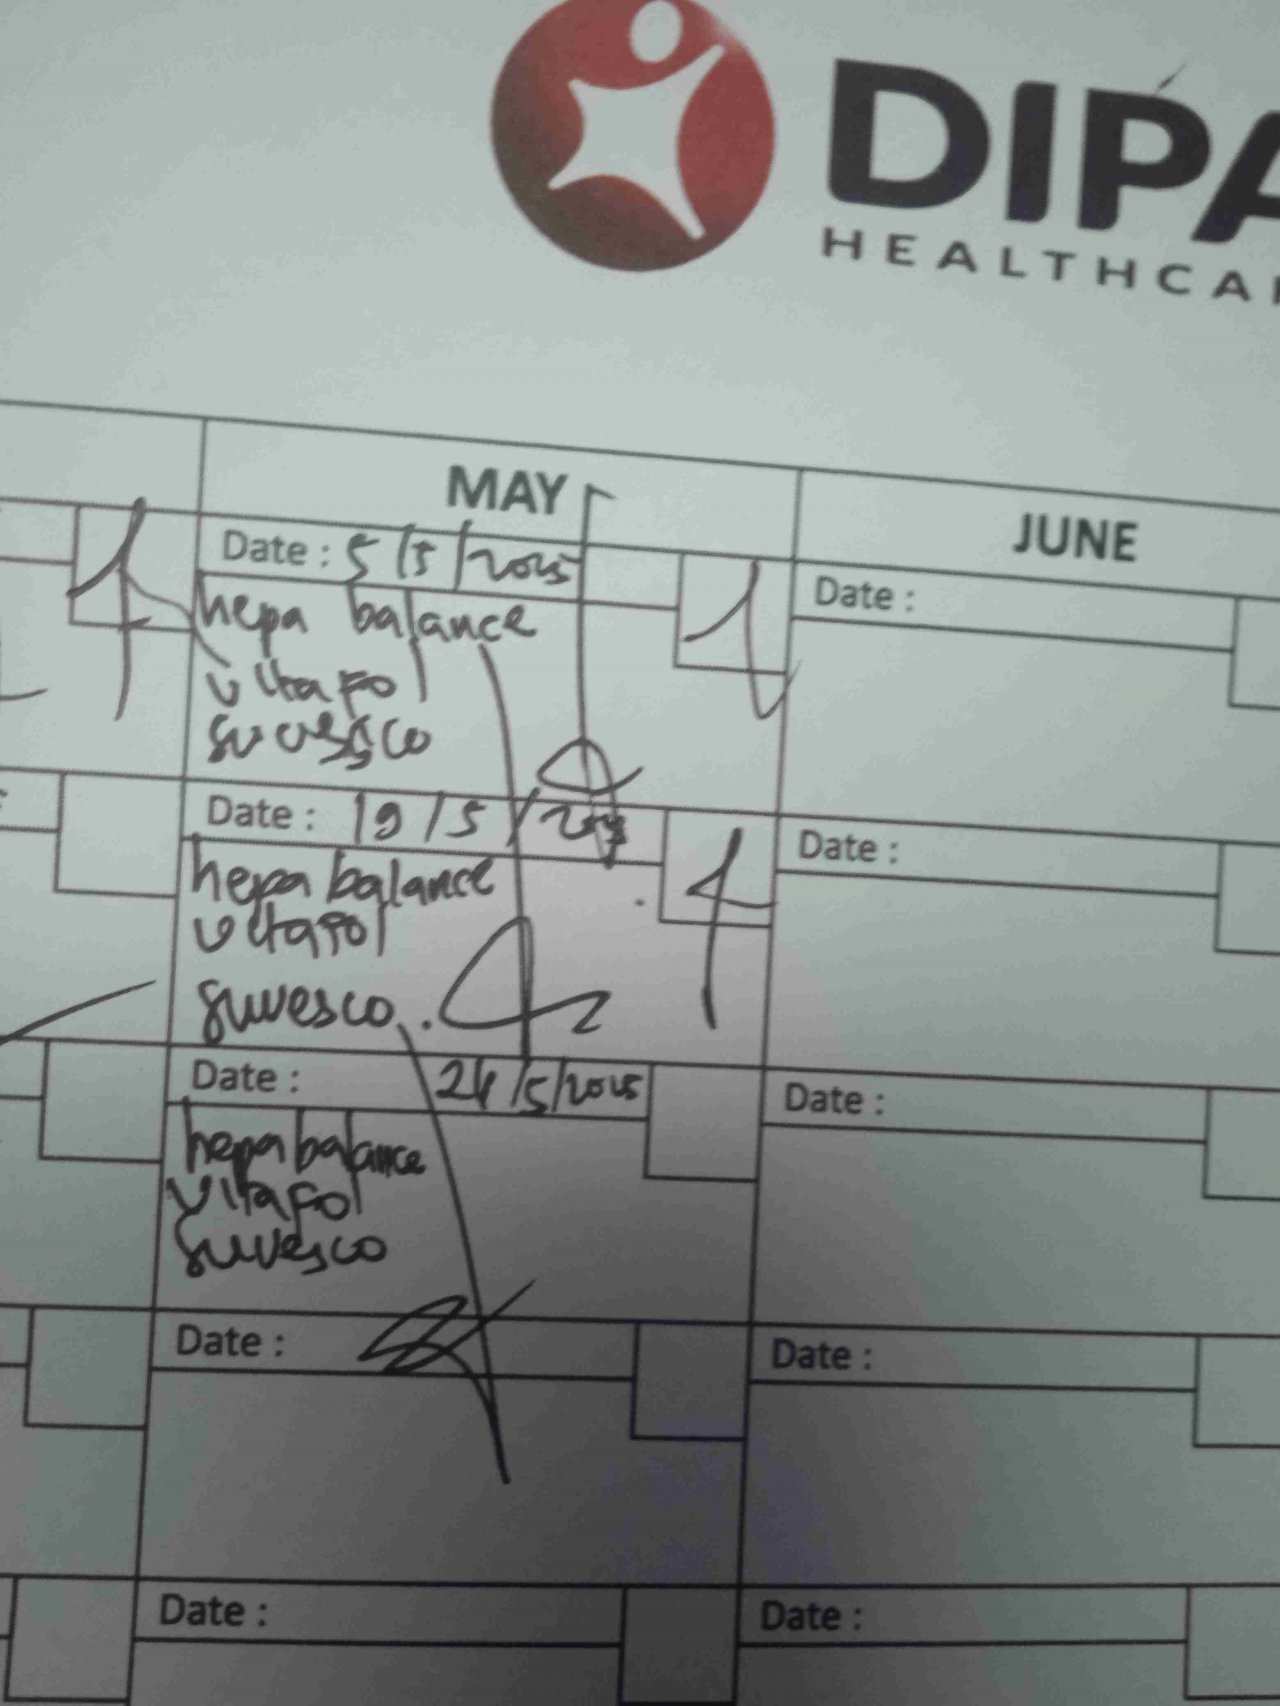 DIPA
HEALTHCA
MAY
JUNE
Date : 5/5/2025
hepa balance
vitafol
suvesco
Date : 19/5/2025
hepa balance
vitafol
suvesco.
Date : 24/5/2025
hepa balance
vitafol
suvesco
Date :
Date :
Date :
Date :
Date :
Date :
Date :